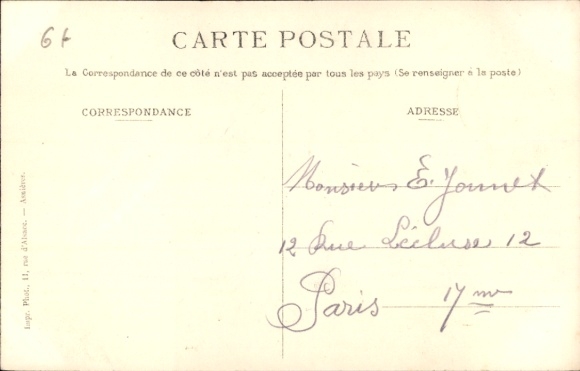 6f
CARTE POSTALE
La Correspondance de ce côté n'est pas acceptée par tous les pays (Se renseigner à la poste)
CORRESPONDANCE
ADRESSE
Monsieur E. Jonnet
12 Rue Lécluse 12
Paris 17me
Impr. Phot., 11, rue d'Alsace. — Asnières.